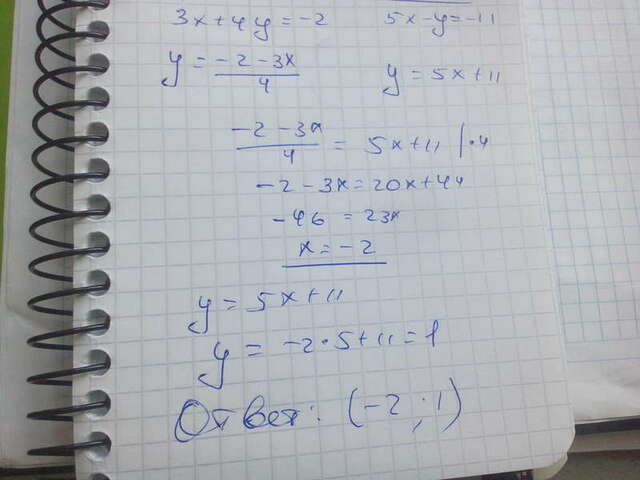 3x+4y=-2 5x-y=-11
y = -2-3x/4 y=5x+11
-2-3x/4 = 5x+11 |·4
-2-3x=20x+44
-46 = 23x
x=-2
y=5x+11
y = -2·5+11=1
Ответ: (-2;1)